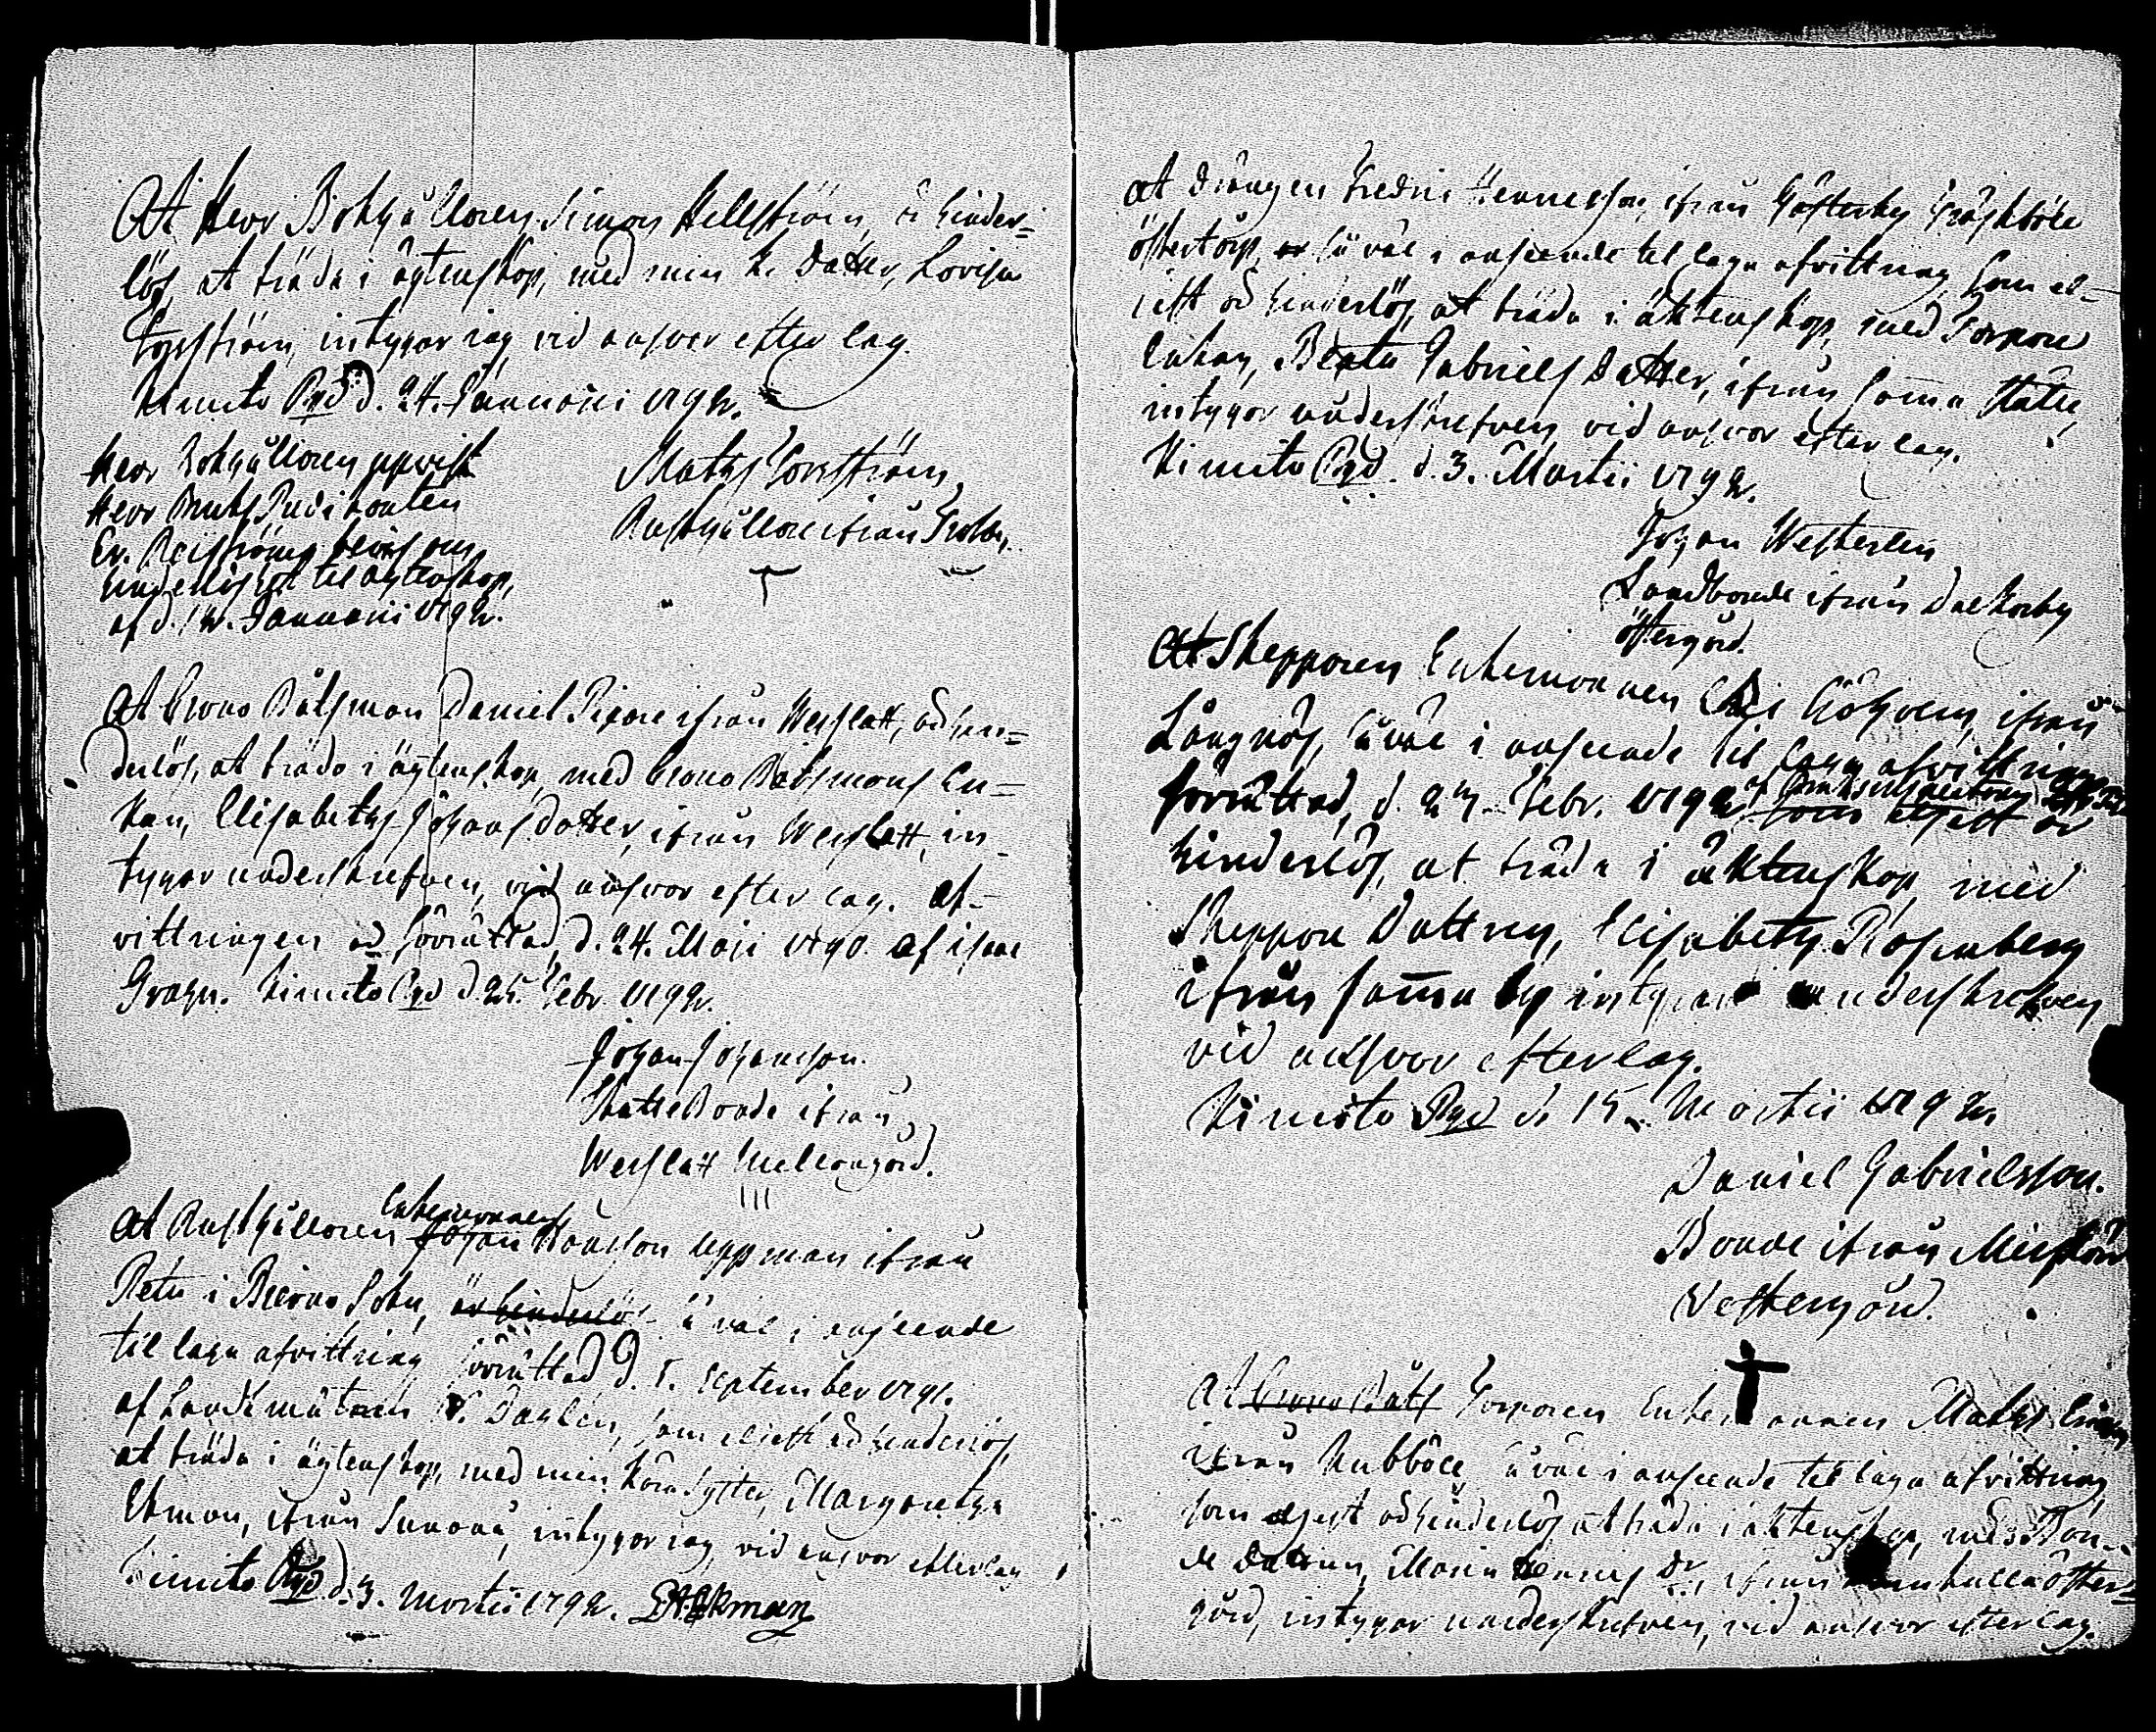 At Herr Bokhålloren Simon Hellström, är hinder-
lös, at träda i ägtenskap, med min k. Datter, Lovisa
Forsström, intygar jag vid answar efter lag.
Kimito Pgd d. 24. Januarii 1792.
Herr Bokhålloren upvist
Herr Bruks Predikanten
Er. Reiströms bevis om
hinderlöshet til ägtenskap,
af d. 12. Januarii 1792.
Maths Forsström,
Rusthållare ifrån
At Crono Båtsman Daniel ifrån Wesslax, är hin-
derlös, at träda i ägtenskap, med Crono Båtsmans En-
kan, Elisabeth Johans datter, ifrån Wesslax, in-
tygar underskrefven, vid answar efter lag. Af-
vittringen är förrättad, d. 24. Maji 1790. af
Grahn. Kimito Pgd d. 25. Febr. 1792.
Johan Johansson.
Skatte Bonde ifrån
Wesslax Mellangård.
At Rusthålloren Enkemannen Johan Hansson Uppman ifrån
i Bierno Sokn, är hinderlös så väl i anseende
til laga afvittring förrättad d. 5. September 1791.
af Landtmätaren Dahlén, som eljest är hinderlös,
at träda i ägtenskap, med min Syster, Margaretha
Ekman, ifrån intygar jag vid answar efter lag
Kimito Pgd d. 3. Martii 1792. Ekman
At Drängen Fredric Henricsson, ifrån Gräsböle
östertorp, är så väl i anseende til laga afvittring som el-
jest är hinderlös, at träda i äktenskap, med Torpare
Enkan, Beata Gabriels Datter, ifrån samma ställe,
intygar underskrefven, vid answar efter lag.
Kimito Pgd. d. 3. Martii 1792.
Johan Westerlin
Landbonde ifrån Dalkarby
östergård.
At Skepparen Enkemannen ifrån
Långnäs, så väl i anseende til laga afvittring
förrättad, d. 27. Febr. 1792 af som eljest är
hinderlös, at träda i äktenskap, med
Skeppare Dottren, Elisabeth Rosenberg
ifrån samma by intygar underskrefven
vid answar efter lag.
Kimito Pgd d. 15. Martii 1792.
Daniel Gabrielsson.
Bonde ifrån
Vestergård.
At Crono Båts Torparen Enkemannen Maths
ifrån Nubböle så väl i anseende til laga afvittring
som eljest är hinderlös at träda i äktenskap, med Bon-
de Dottren, Maria Henrics Dr, ifrån öster-
gård, intygar underskrefven, vid answar efter lag.